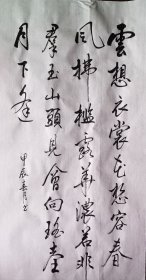 雲想衣裳花想容春
風拂檻露華濃若非
羣玉山頭見會向瑤臺
月下逢
甲辰